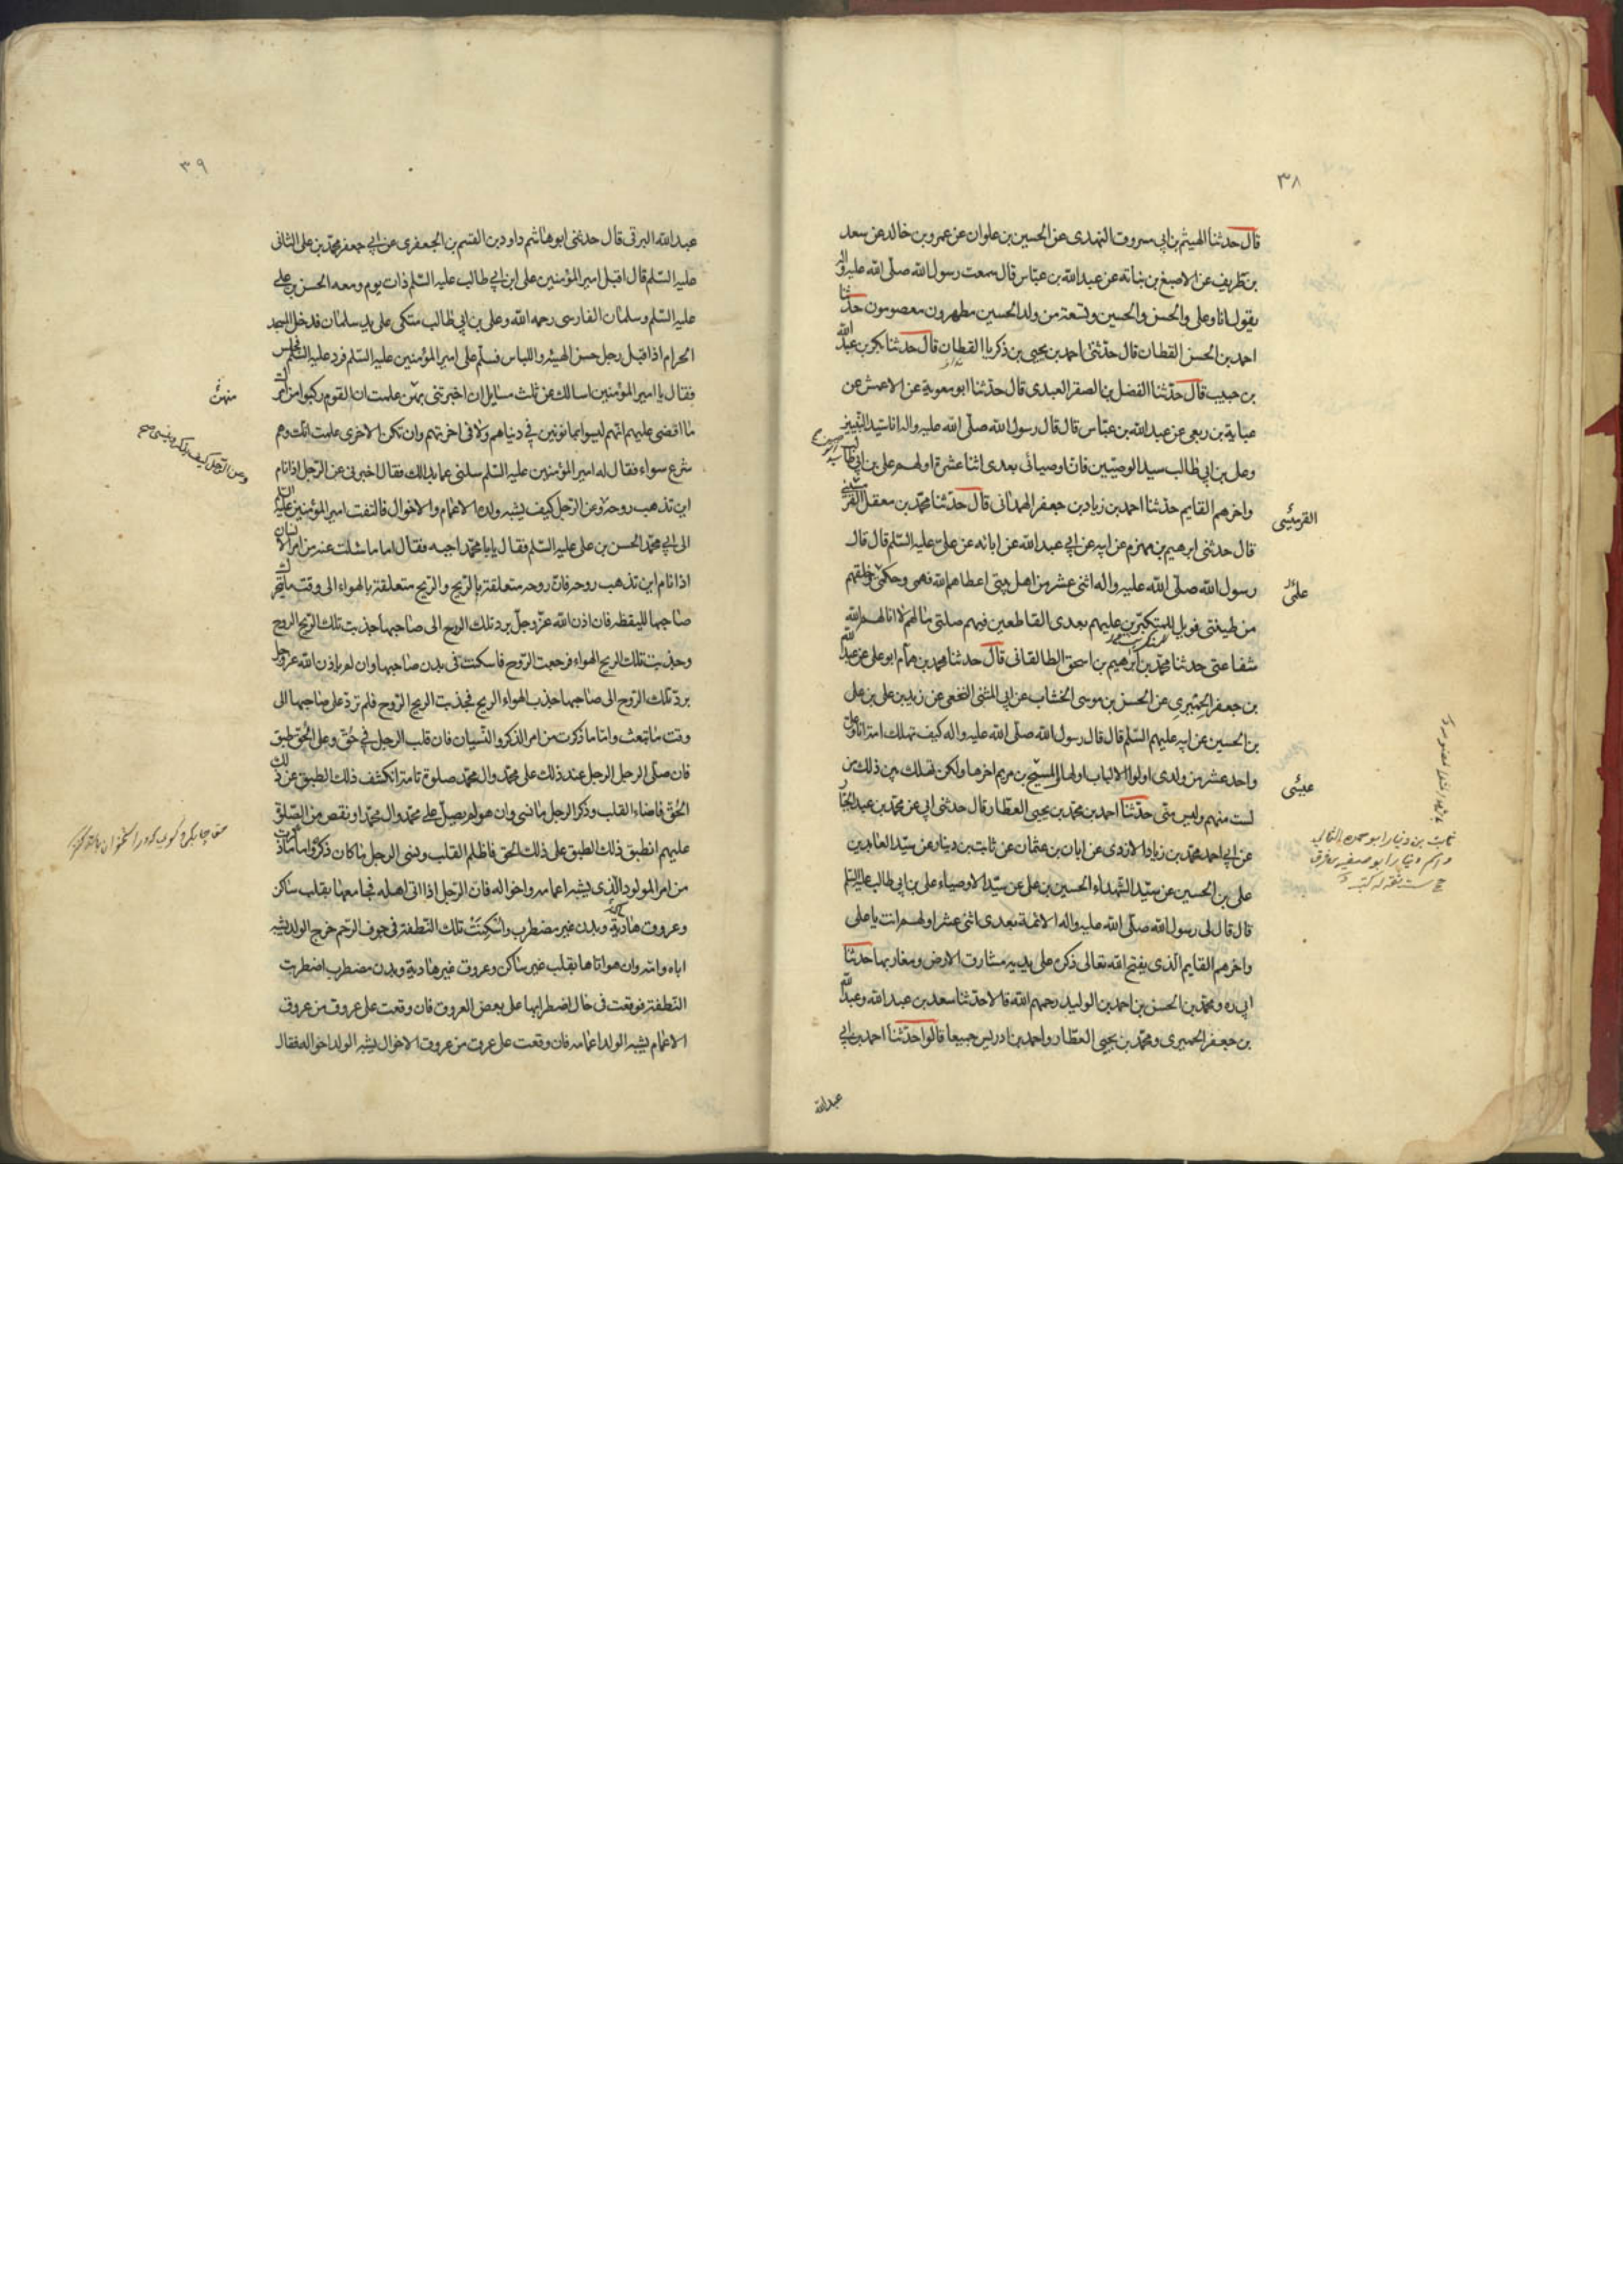 ٣٨
قال حدثنا الهيثم بن ابي مسروق النهدى عن الحسين بن علوان عن عمرو بن خالد عن سعد
بن طريف عن الاصبغ بن نباته عن عبد الله بن عباس قال سمعت رسول الله صلى الله عليه واله
يقول انا وعلى والحسن والحسين وتسعة من ولد الحسين مطهرون معصومون حدثنا
احمد بن الحسن القطان قال حدثنى احمد بن يحيى بن زكريا القطان قال حدثنا بكر بن عبد الله
بن حبيب قال حدثنا الفضل بن الصقر العبدى قال حدثنا ابو معوية عن الاعمش عن
عباية بن ربعى عن عبد الله بن عباس قال قال رسول الله صلى الله عليه واله انا سيد النبيين
وعلى بن ابي طالب سيد الوصيين فان اوصيائى بعدى اثنا عشرة اولهم على بن ابي طالب
واخرهم القايم حدثنا احمد بن زياد بن جعفر الهمدانى قال حدثنا محمد بن معقل القرميسينى
القرميسى
قال حدثنى ابرهيم بن مهزم عن ابيه عن ابي عبد الله عن ابائه عن على عليه السلم قال قال
رسول الله صلى الله عليه واله اثنى عشر من اهل بيتى اعطاهم الله فهمى وحكمتى وخلقهم
من طينتى فويل للمتكبرين عليهم بعدى القاطعين فيهم صلتى ما لهم لا انالهم الله
شفاعتى حدثنا محمد بن ابرهيم بن اسحق الطالقانى قال حدثنا محمد بن همام ابو على عن عبد الله
بن جعفر الحميرى عن الحسن بن موسى الخشاب عن ابي المثنى النخعى عن زيد بن على بن على
بن الحسين عن ابيه عليهم السلم قال قال رسول الله صلى الله عليه واله كيف تهلك امة انا وعلى
واحد عشر من ولدى اولوا الالباب اولها والمسيح بن مريم اخرها ولكن تهلك بين ذلك من
لست منهم وليس منى حدثنا احمد بن محمد بن يحيى العطار قال حدثنى ابي عن محمد بن عبد الجبار
عن ابي احمد محمد بن زياد الازدى عن ابان بن عثمان عن ثابت بن دينار عن سيد العابدين
على بن الحسين عن سيد الشهداء الحسين بن على عن سيد الاوصياء على بن ابي طالب عليه السلم
قال قال لى رسول الله صلى الله عليه واله الائمة بعدى اثنى عشر اولهم انت يا على
واخرهم القايم الذى يفتح الله تعالى ذكره على يديه مشارق الارض ومغاربها حدثنا
ابي ره ومحمد بن الحسن بن احمد بن الوليد رحمهم الله قالا حدثنا سعد بن عبد الله وعبد الله
بن جعفر الحميرى ومحمد بن يحيى العطار واحمد بن ادريس جميعا قالوا حدثنا احمد بن ابي
عبد الله
٣٩
عبد الله البرقى قال حدثنى ابو هاشم داود بن القسم بن الجعفرى عن ابي جعفر محمد بن على الثانى
عليه السلم قال اقبل امير المؤمنين على ابن ابي طالب عليه السلم ذات يوم ومعه الحسن بن على
عليه السلم وسلمان الفارسى رحمه الله وعلى بن ابي طالب متكى على يد سلمان فدخل المسجد
الحرام اذ اقبل رجل حسن الهيئة واللباس فسلم على امير المؤمنين عليه السلم فرد عليه السلم فجلس
فقال يا امير المؤمنين اسالك عن ثلث مسايل ان اخبرتنى بهن علمت ان القوم ركبوا من امرك
ما اقضى عليهم انهم ليسوا بمامونين في دنياهم ولا فى اخرتهم وان تكن الاخرى علمت انك وهم
شرع سواء فقال له امير المؤمنين عليه السلم سلنى عما بدا لك فقال اخبرنى عن الرجل اذا نام
اين تذهب روحه وعن الرجل كيف يشبه ولده الاعمام والاخوال فالتفت امير المؤمنين عليه السلم
الى ابي محمد الحسن بن على عليه السلم فقال يا با محمد اجبه فقال اما ما سئلت عنه من امر الانسان
اذا نام اين تذهب روحه فان روحه متعلقة بالريح والريح متعلقة بالهواء الى وقت ما يتحرك
صاحبها لليقظة فان اذن الله عز وجل برد تلك الروح الى صاحبها جذبت تلك الريح الروح
وجذبت تلك الريح الهواء فرجعت الروح فاسكنت فى بدن صاحبها وان لم ياذن الله عز وجل
برد تلك الروح الى صاحبها جذب الهواء الريح فجذبت الريح الروح فلم ترد على صاحبها الى
وقت ما يبعث واما ما ذكرت من امر الذكر والنسيان فان قلب الرجل في حق وعلى الحق طبق
فان صلى الرجل عند ذلك على محمد وال محمد صلوة تامة انكشف ذلك الطبق عن ذلك
الحق فاضاء القلب وذكر الرجل ما نسى وان هو لم يصل على محمد وال محمد او نقص من الصلوة
عليهم انطبق ذلك الطبق على ذلك الحق فاظلم القلب ونسى الرجل ما كان ذكره واما ما ذكرت
من امر المولود الذى يشبه اعمامه واخواله فان الرجل اذا اتى اهله فجامعها بقلب ساكن
وعروق هادية وبدن غير مضطرب واسكنت تلك النطفة فى جوف الرحم خرج الولد يشبه
اباه وامه وان هو اتاها بقلب غير ساكن وعروق غير هادية وبدن مضطرب اضطربت
النطفة فوقعت فى حال اضطرابها على بعض العروق فان وقعت على عروق من عروق
الاعمام يشبه الولد اعمامه فان وقعت على عرق من عروق الاخوال يشبه الولد اخواله فقال